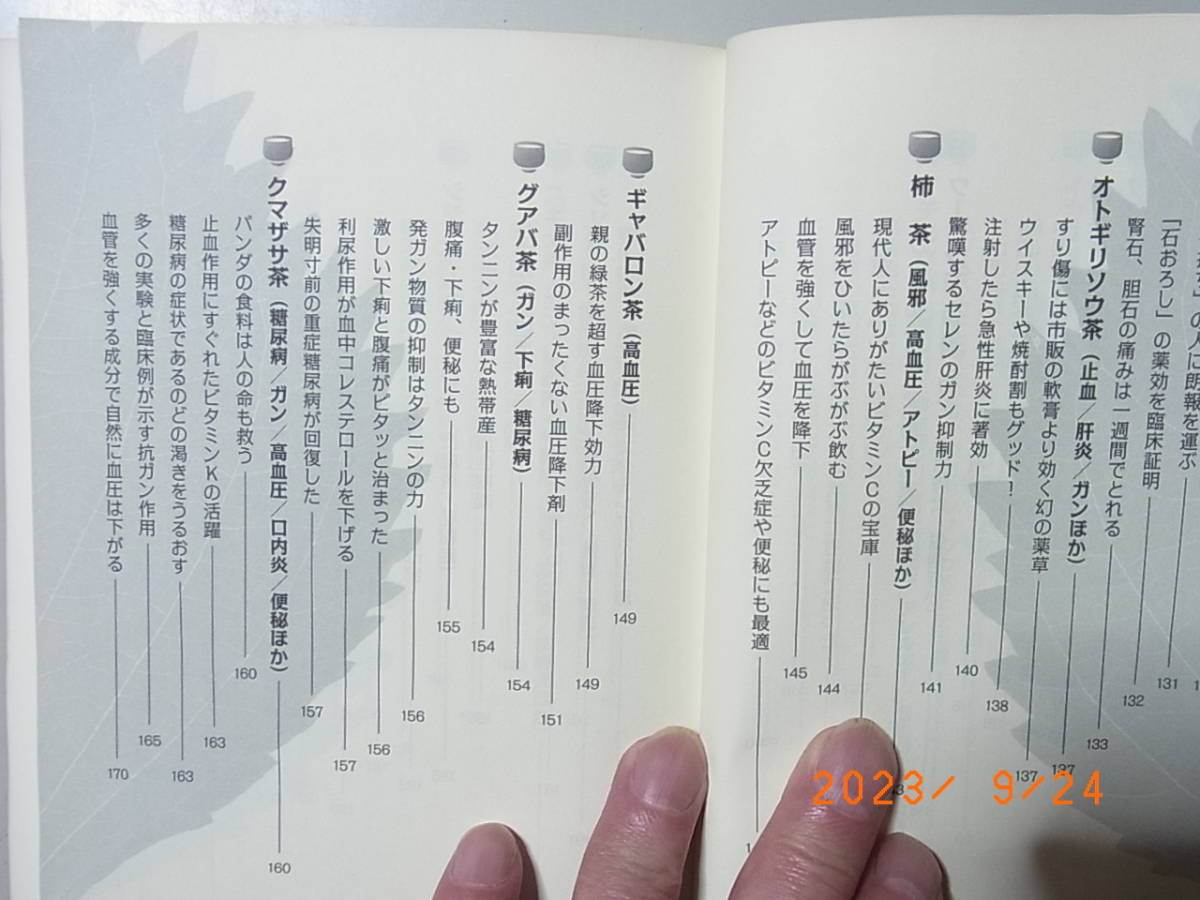 の人に朗報を運ぶ
「石おろし」の薬効を臨床証明 131
腎石、胆石の痛みは一週間でとれる 132
オトギリソウ茶（止血／肝炎／ガンほか） 133
すり傷には市販の軟膏より効く幻の薬草 137
ウイスキーや焼酎割もグッド！ 137
注射したら急性肝炎に著効 138
驚嘆するセレンのガン抑制力 140
柿 茶（風邪／高血圧／アトピー／便秘ほか） 141
現代人にありがたいビタミンCの宝庫
風邪をひいたらがぶがぶ飲む 144
血管を強くして血圧を降下 145
アトピーなどのビタミンC欠乏症や便秘にも最適
ギャバロン茶（高血圧） 149
親の緑茶を超す血圧降下効力 149
副作用のまったくない血圧降下剤 151
グアバ茶（ガン／下痢／糖尿病） 154
タンニンが豊富な熱帯産 154
腹痛・下痢、便秘にも 155
発ガン物質の抑制はタンニンの力 156
激しい下痢と腹痛がピタッと治まった 156
利尿作用が血中コレステロールを下げる 157
失明寸前の重症糖尿病が回復した 157
クマザサ茶（糖尿病／ガン／高血圧／口内炎／便秘ほか） 160
パンダの食料は人の命も救う 160
止血作用にすぐれたビタミンKの活躍 163
糖尿病の症状であるのどの渇きをうるおす 163
多くの実験と臨床例が示す抗ガン作用 165
血管を強くする成分で自然に血圧は下がる 170
2023/ 9/24